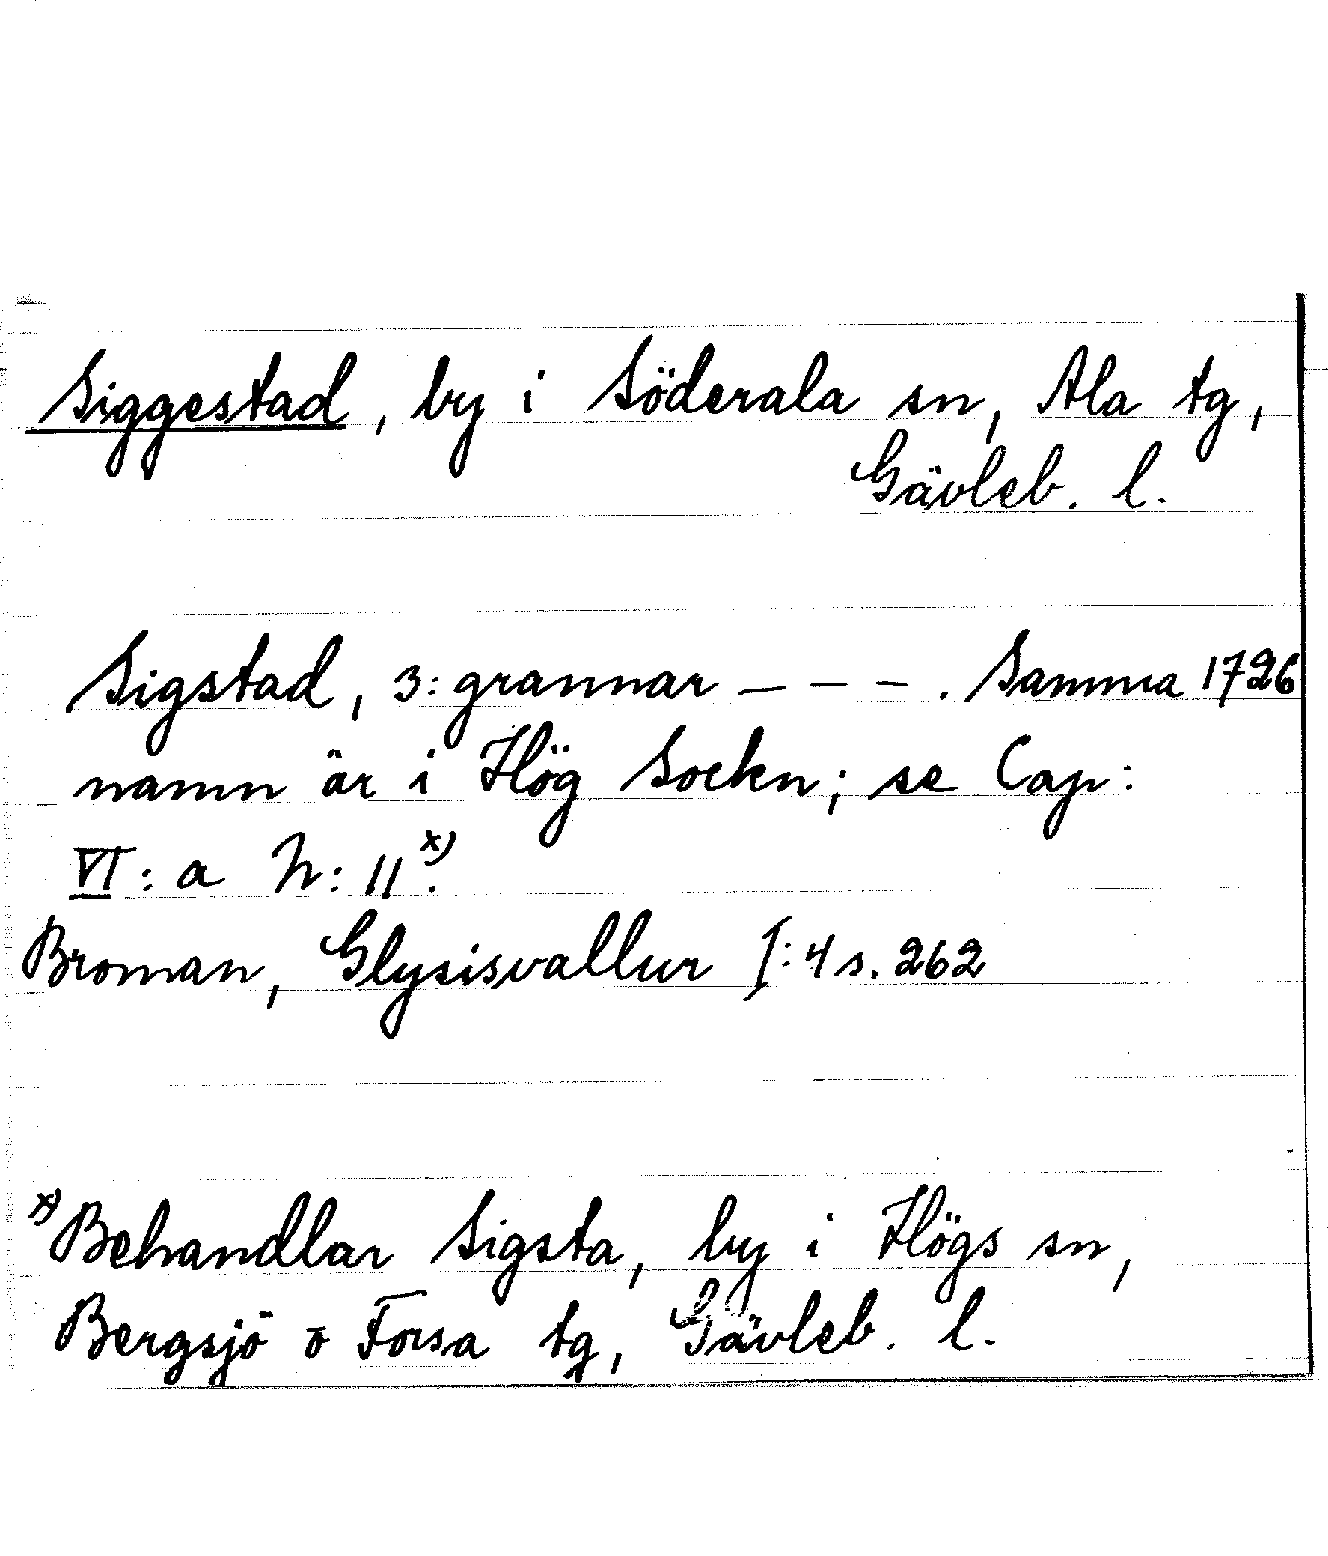 Siggestad, by i Söderala sn, Ala tg,
Gävleb. l.
Sigstad, 3: grannar – – – . Samma 1726
namn är i Hög Sockn; se Cap:
VI: a N: 11 x).
Broman, Glysisvallur I: 4 s. 262
x) Behandlar Sigsta, by i Högs sn,
Bergsjö o Forsa tg, Gävleb. l.